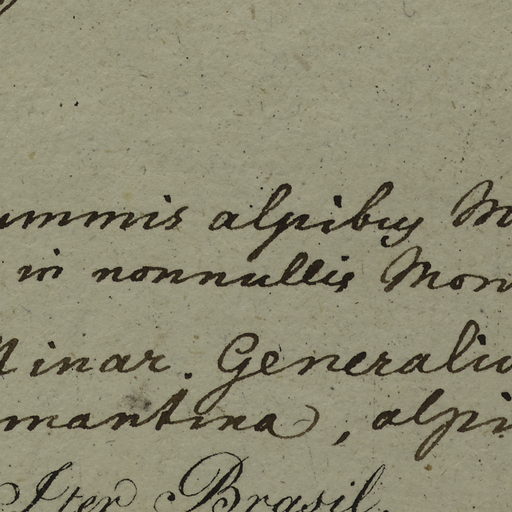 ummis alpibus Mo
in nonnullis Mon
Minar. Generaliu
mantina, alpi
Iter Brasil.